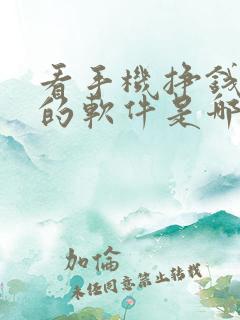 看手機掙錢
的軟件是哪
加倫
未任同意禁止转载